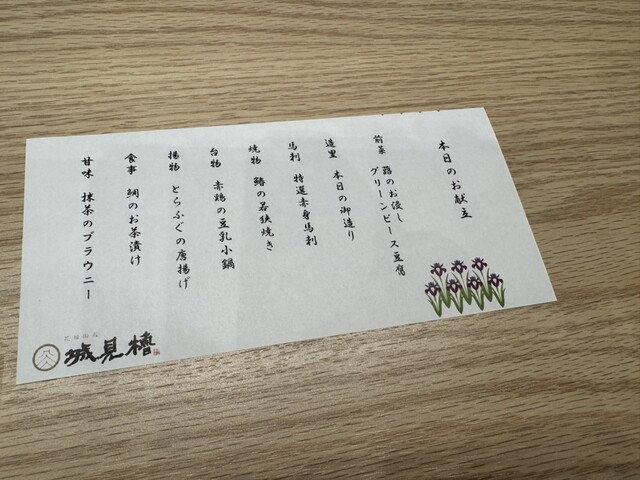 本日のお献立
前菜 蕗のお浸し
グリーンピース豆腐
造里 本日の御造り
馬刺 特選赤身馬刺
焼物 鰆の若狭焼き
台物 赤鶏の豆乳小鍋
揚物 とらふぐの唐揚げ
食事 鯛のお茶漬け
甘味 抹茶のブラウニー
城見櫓